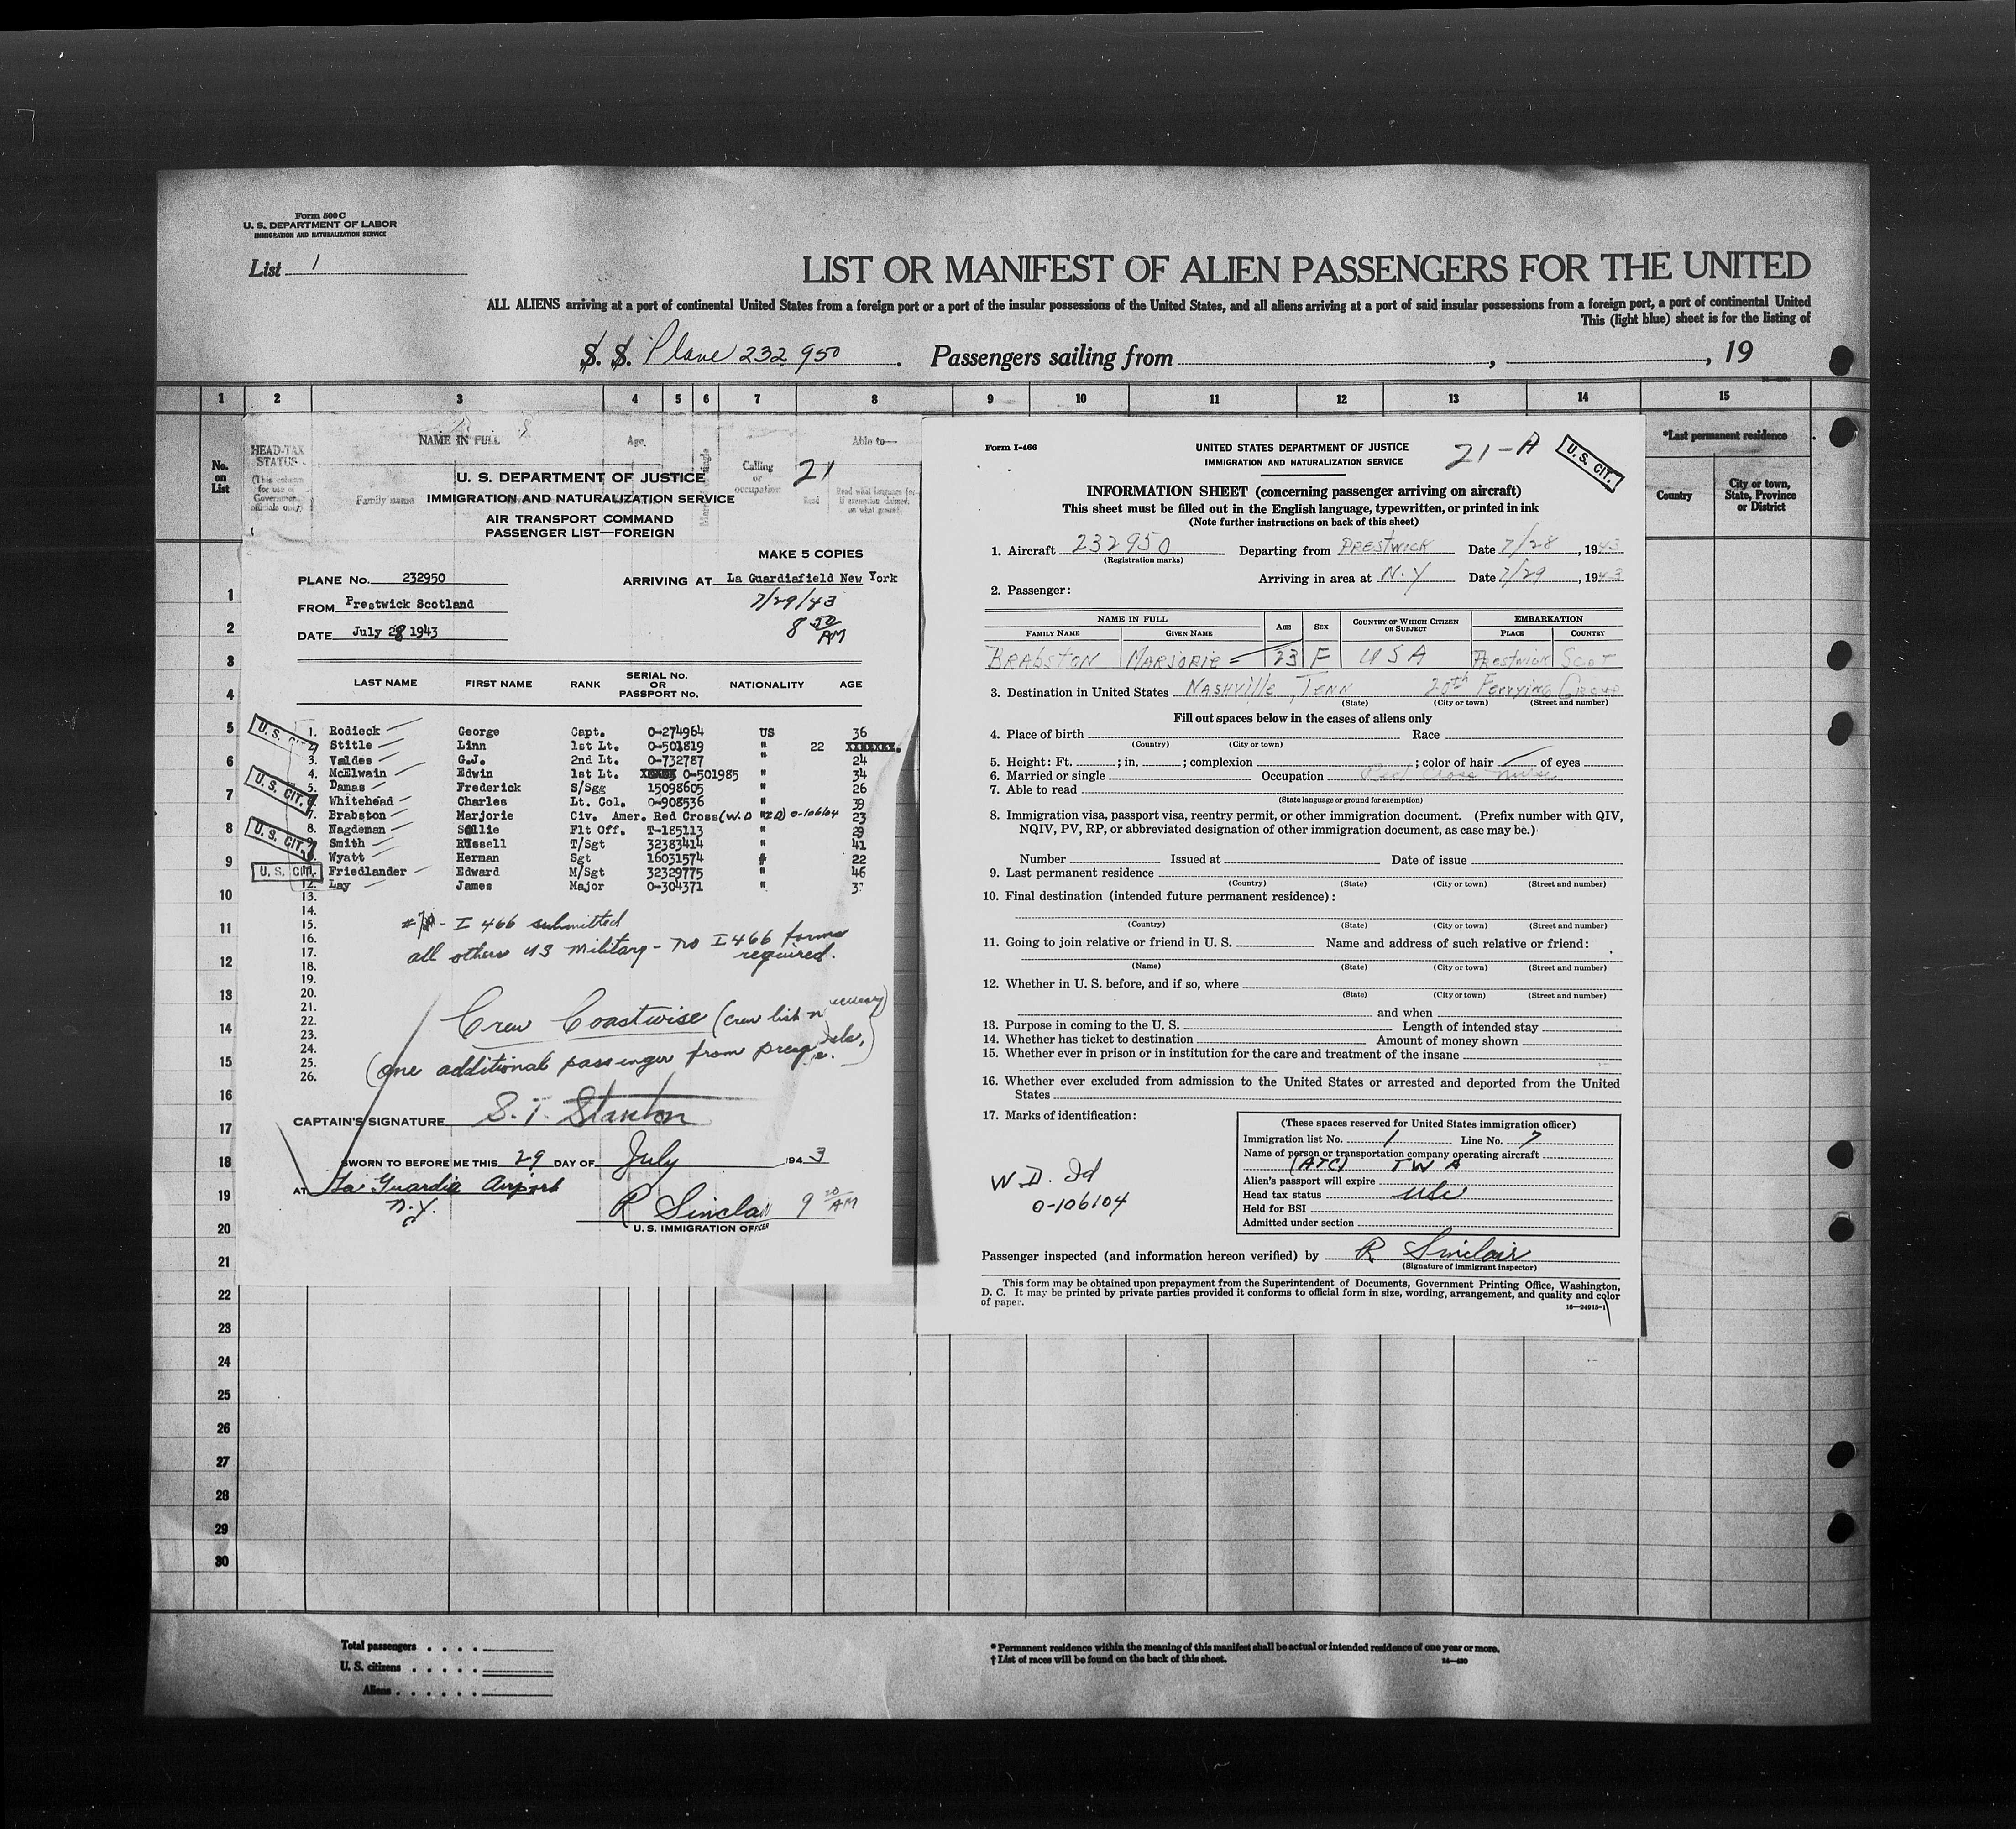 Form 500 C
U. S. DEPARTMENT OF LABOR
IMMIGRATION AND NATURALIZATION SERVICE
List 1
LIST OR MANIFEST OF ALIEN PASSENGERS FOR THE UNITED
ALL ALIENS arriving at a port of continental United States from a foreign port or a port of the insular possessions of the United States, and all aliens arriving at a port of said insular possessions from a foreign port, a port of continental United
This (light blue) sheet is for the listing of
S. S. Plane 232,950. Passengers sailing from , , 19
1 2 3 4 5 6 7 8 9 10 11 12 13 14 15
No. on List
HEAD-TAX STATUS
(This column for use of Government officials only)
NAME IN FULL
Family name
Age
Calling or occupation
Able to—
Read
Read what language
on what ground
*Last permanent residence
Country
City or town, State, Province or District
21
U. S. DEPARTMENT OF JUSTICE
IMMIGRATION AND NATURALIZATION SERVICE
AIR TRANSPORT COMMAND
PASSENGER LIST—FOREIGN
MAKE 5 COPIES
PLANE No. 232950
ARRIVING AT La Guardiafield New York
FROM Prestwick Scotland
7/29/43
DATE July 28 1943
8 50 AM
LAST NAME FIRST NAME RANK SERIAL No. OR PASSPORT No. NATIONALITY AGE
U. S. CIT.
U. S. CIT.
U. S. CIT.
U. S. CIT.
1. Rodieck George Capt. O-274964 US 36
2. Stitle Linn 1st Lt. O-501819 " 22
3. Valdes G.J. 2nd Lt. O-732787 " 24
4. McElwain Edwin 1st Lt. O-501985 " 34
5. Damas Frederick S/Sgg 15098605 " 26
6. Whitehead Charles Lt. Col. O-908536 " 39
7. Brabston Marjorie Civ. Amer. Red Cross (W.D ID) O-106104 23
8. Nagdeman Sollie Flt Off. T-185113 " 29
9. Smith Russell T/Sgt 32383414 " 41
10. Wyatt Herman Sgt 16031574 " 22
11. Friedlander Edward M/Sgt 32329775 " 46
12. Lay James Major O-304371 "
13.
14.
15.
16.
17.
18.
19.
20.
21.
22.
23.
24.
25.
26.
#7 - I 466 submitted
all others US Military - no I 466 forms required.
Crew Coastwise (crew list
(one additional passenger from
CAPTAIN'S SIGNATURE S. T. Stanton
SWORN TO BEFORE ME THIS 29 DAY OF July 1943
AT La Guardia Airport
N.Y.
R Sinclair 9 AM
U. S. IMMIGRATION OFFICER
Form I-466
UNITED STATES DEPARTMENT OF JUSTICE
IMMIGRATION AND NATURALIZATION SERVICE
21-A
U. S. CIT.
INFORMATION SHEET (concerning passenger arriving on aircraft)
This sheet must be filled out in the English language, typewritten, or printed in ink
(Note further instructions on back of this sheet)
1. Aircraft 232950 Departing from PRESTWICK Date 7/28, 1943
(Registration marks)
Arriving in area at N.Y Date 7/29, 1943
2. Passenger:
NAME IN FULL AGE SEX COUNTRY OF WHICH CITIZEN OR SUBJECT EMBARKATION
FAMILY NAME GIVEN NAME PLACE COUNTRY
BRABSTON MARJORIE 23 F USA Prestwick SCOT
3. Destination in United States NASHVILLE, TENN 20th Ferrying Group
(State) (City or town) (Street and number)
Fill out spaces below in the cases of aliens only
4. Place of birth Race
(Country) (City or town)
5. Height: Ft. ; in. ; complexion ; color of hair of eyes
6. Married or single Occupation Red Cross nurse
7. Able to read
(State language or ground for exemption)
8. Immigration visa, passport visa, reentry permit, or other immigration document. (Prefix number with QIV,
NQIV, PV, RP, or abbreviated designation of other immigration document, as case may be.)
Number Issued at Date of issue
9. Last permanent residence
(Country) (State) (City or town) (Street and number)
10. Final destination (intended future permanent residence):
(Country) (State) (City or town) (Street and number)
11. Going to join relative or friend in U. S. Name and address of such relative or friend:
(Name) (State) (City or town) (Street and number)
12. Whether in U. S. before, and if so, where
(State) (City or town) (Street and number)
and when
13. Purpose in coming to the U. S. Length of intended stay
14. Whether has ticket to destination Amount of money shown
15. Whether ever in prison or in institution for the care and treatment of the insane
16. Whether ever excluded from admission to the United States or arrested and deported from the United
States
17. Marks of identification:
W.D. Id
O-106104
(These spaces reserved for United States immigration officer)
Immigration list No. 1 Line No. 7
Name of person or transportation company operating aircraft
(ATC) TWA
Alien's passport will expire
Head tax status USC
Held for BSI
Admitted under section
Passenger inspected (and information hereon verified) by R Sinclair
(Signature of immigrant inspector)
This form may be obtained upon prepayment from the Superintendent of Documents, Government Printing Office, Washington,
D. C. It may be printed by private parties provided it conforms to official form in size, wording, arrangement, and quality and color
of paper.
16—24915-1
1
2
3
4
5
6
7
8
9
10
11
12
13
14
15
16
17
18
19
20
21
22
23
24
25
26
27
28
29
30
Total passengers
U. S. citizens
Aliens
* Permanent residence within the meaning of this manifest shall be actual or intended residence of one year or more.
† List of races will be found on the back of this sheet.